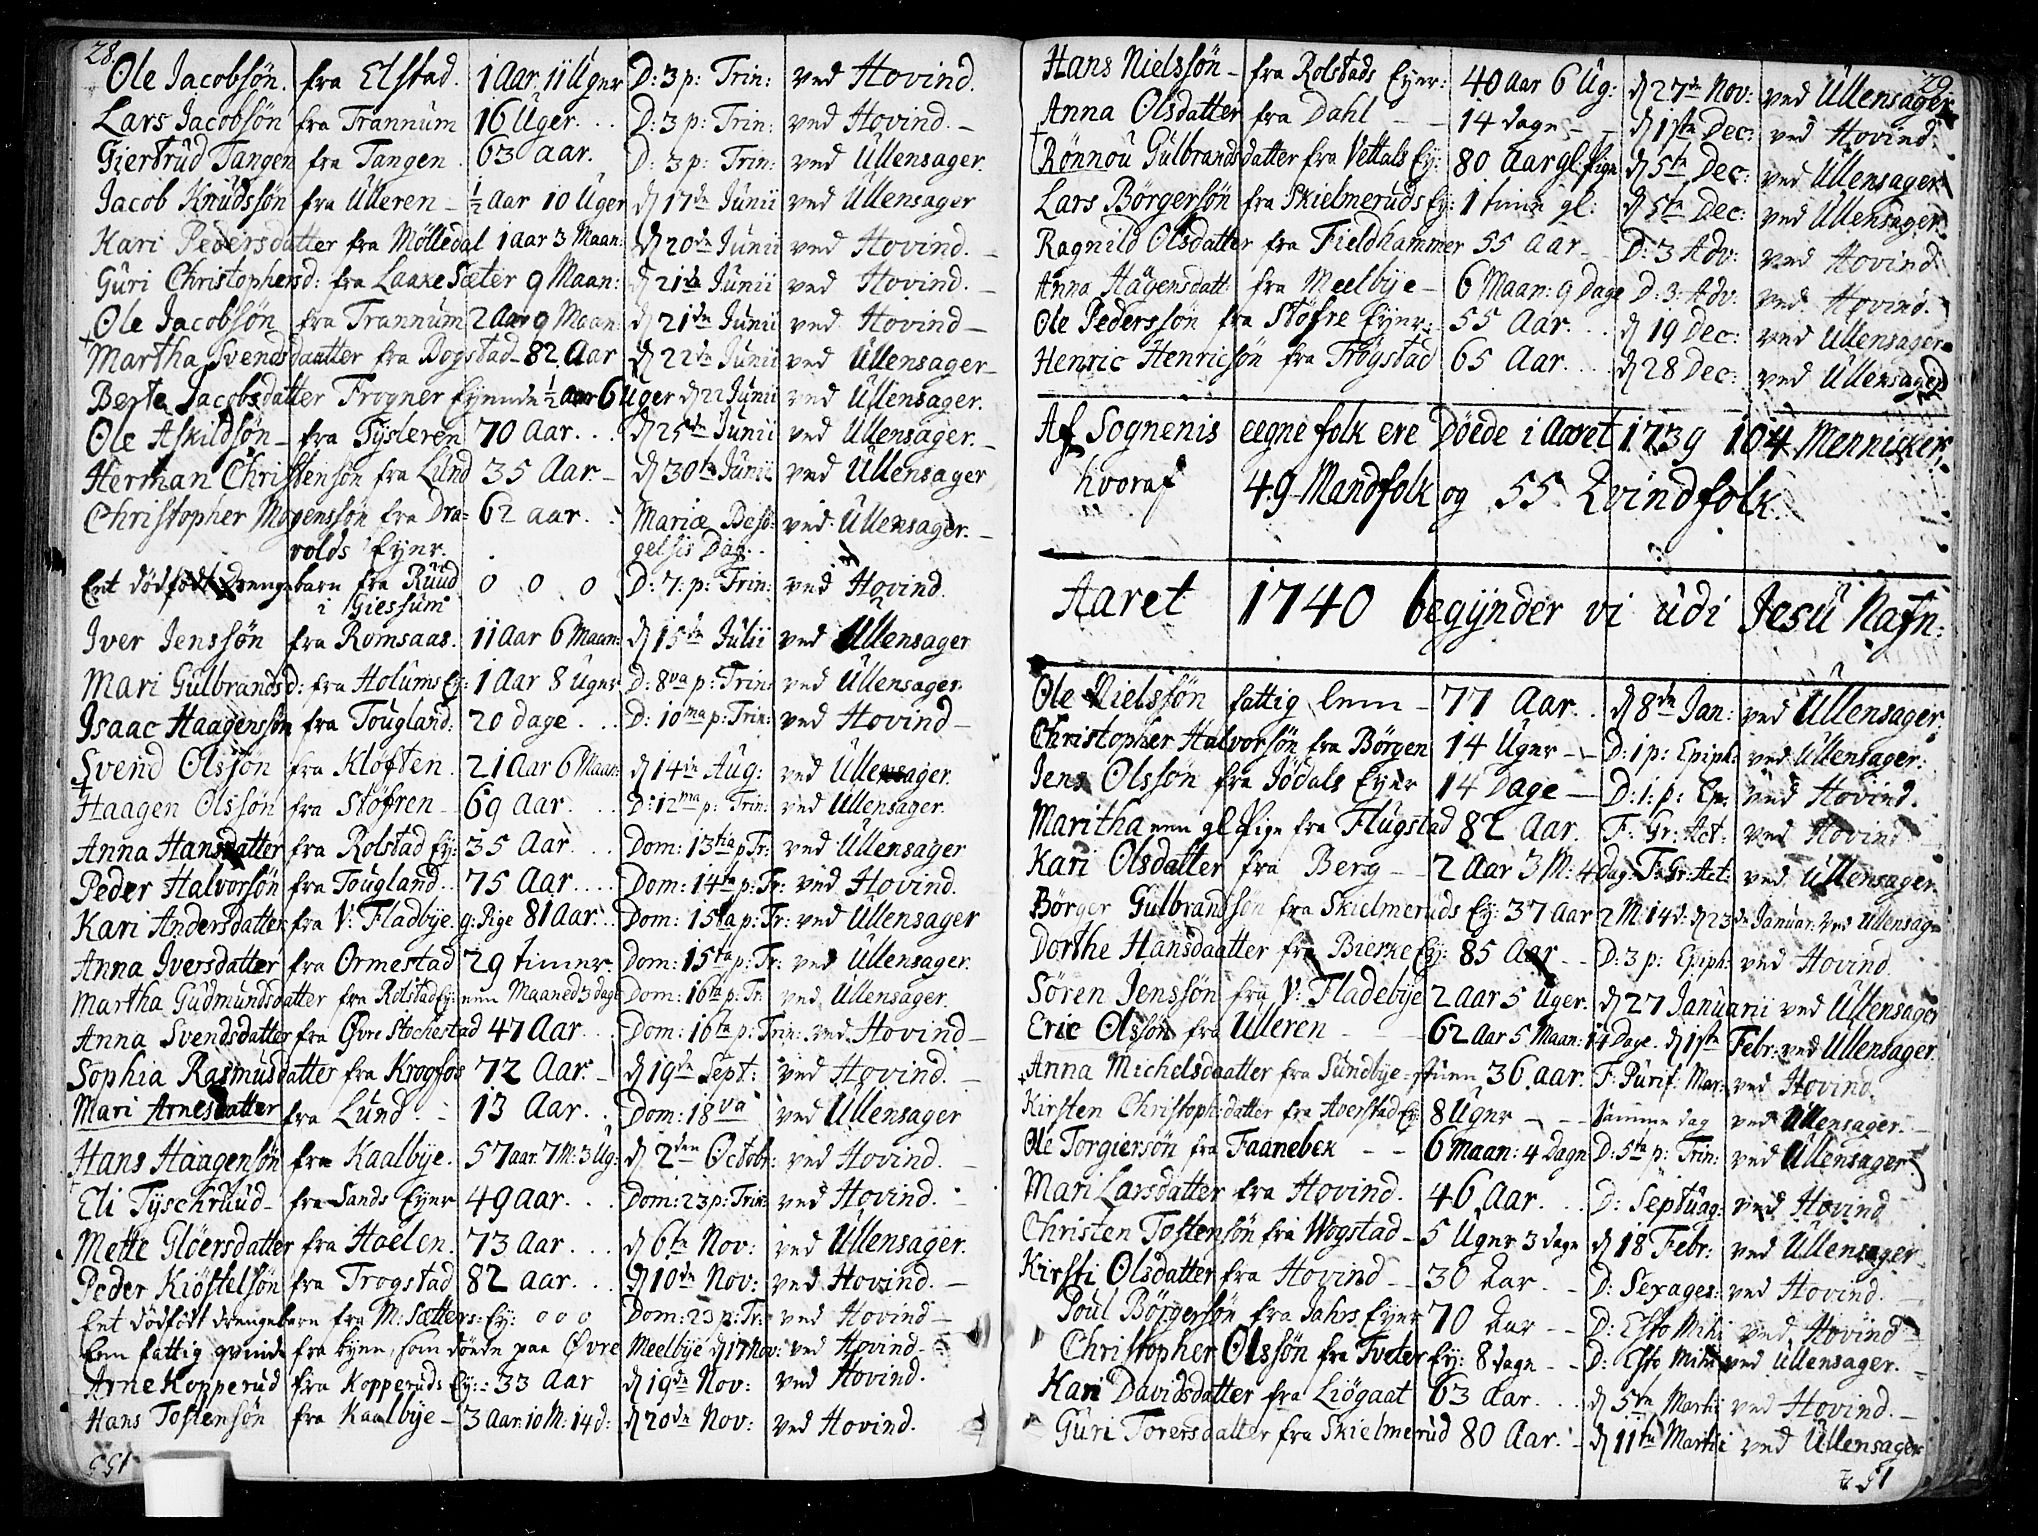 28.
Ole Jacobsøn. fra Elstad. 1 Aar. 11 Uger D: 3 p: Trin: ved Hovind.
Lars Jacobsøn fra Trannum 16 Uger. . . D: 3 p: Trin: ved Hovind. –
Giertrud Tangen fra Tangen. 63 aar. D: 3 p: Trin: ved Ullensager.
Jacob Knudssøn fra Ulleren – ½ Aar 10 Uger d 17de Junii ved Ullensager
Kari Pedersdatter fra Mölledal 1 aar 3 Maan: d 20de Junii ved Hovind. –
Guri Christophersd: fra Laake Sæter 9 Maan: d 21de Junii ved Hovind. –
Ole Jacobsøn fra Trannum 2 Aar 9 Maan: d 21de Junii ved Hovind –
Martha Svendsdaatter fra Bogstad – 82 Aar d 22de Junii ved Ullensager –
Berte Jacobsdatter Frogner Eyende ½ aar 6 Uger d 22 Junii ved Ullensager.
Ole Askildsøn – fra Tysleren 70 Aar. . . d 25de Junii ved Ullensager. –
Herman Christensøn fra Lund 35 Aar. – d 30te Junii ved Ullensager
Christopher Mogenssøn fra Dra= 62 aar. . Mariæ Besö= ved Ullensager. –
volds Eyer. gelsis Dag.
Eet dödfödt Drengebarn fra Ruud 0 0 0 D: 7: p: Trin: ved Hovind.
i Giessum
Iver Jenssøn fra Romsaas. 11 Aar 6 Maan: d 15de Julii ved Ullensager
Mari Gulbrandsd: fra Holums Ey: 1 Aar 8 Uger D: 8va p: Trin: ved Ullensager.
Isaac Haagenssøn fra Tougland: 20 dage . . . D: 10ma p: Trin: ved Hovind –
Svend Olssøn fra Kløften. 21 Aar 6 Maan: d 14de Aug: ved Ullensager.
Haagen Olssøn fra Støfren – 69 Aar. . . D: 12ma p: Trin: ved Ullensager.
Anna Hansdatter fra Rolstad Ey: 35 Aar. . . Dom: 13tia p Tr: ved Ullensager
Peder Halvorsøn fra Tougland. . 75 Aar. . . . Dom: 14ta p: Tr: ved Hovind.
Kari Andersdatter fra V: Fladbye. g: Pige 81 Aar. . . Dom: 15ta p: Tr: ved Ullensager
Anna Iversdatter fra Ormestad 29 timer. Dom: 15ta p: Tr: ved Ullensager.
Martha Gudmundsdatter fra Rolstad Ey: een Maaned 3 dage Dom: 16ta p: Tr: ved Ullensager.
Anna Svendsdatter fra Øvre Stochestad 47 Aar. . . Dom: 16ta p: Trin: ved Hovind –
Sophia Rasmusdatter fra Krogfos 72 Aar. – d 19de Sept: ved Hovind. –
Mari Arnesdatter fra Lund – 13 Aar. . Dom: 18va ved Ullensager
Hans Haagensøn fra Kaalbye. 57 aar. 7 M: 3 Ug: d 2den Octobr: ved Hovind. –
Eli Tyschruud – fra Sands Eyer 49 aar. . . Dom: 23 p: Trin: ved Hovind. –
Mette Glöersdatter fra Hoelen. 73 Aar. . . d 6te Nov: ved Ullensager.
Peder Kiöstelsøn fra Trogstad 82 aar. . . d 10de Nov: ved Hovind. –
Eet dödfödt drengebarn fra M: Sætters Ey: 0 0 0 Dom: 23 p: Tr: ved Hovind –
Een fattig qvinde fra byen, som döede paa Øvre Meelbye d 17 Nov: ved Hovind –
Arne Kopperud fra Kopperuds Ey: 33 Aar d 19de Nov: ved Hovind.
Hans Tostensøn fra Kaalbye – 3 Aar: 10 M: 14 d: d 20de Nov: ved Hovind.
29.
Hans Nielssøn – fra Rolstads Eyer: 40 aar 6 Ug: d 27de Nov: ved Ullensager
Anna Olsdatter fra Dahl – – 14 dage – – d 1ste Dec: ved Hovind.
Rönnou Gulbrandsdatter fra Vettals Ey: 80 Aar gl: Pige d 5te Dec: ved Ullensager
Lars Börgersøn fra Skielmeruds Ey: 1 time gl: d 5te Dec: ved Ullensager
Ragnild Olsdatter fra Fieldhammer 55 Aar – D: 3 Adv: ved Hovind
Anna Hagensdatt: fra Meelbye – 6 Maan: 9 Dage D: 3: Adv: ved Hovind.
Ole Pederssøn fra Støfre Eyer: 55 Aar. . . d 19 Dec: ved Ullensager
Henric Henricsøn fra Trögstad 65 Aar. . . d 28 Dec: ved Ullensager
Af Sognenis eegne folk ere Döede i Aaret 1739 104 Mennisker,
hvoraf 49 Mandfolk og 55 Qvindfolk.
Aaret 1740 begynder vi udi Jesu Nafn:
Ole Nielssøn fattig lem – 77 Aar. . d 8de Jan: ved Ullensager
Christopher Halvorsøn fra Börgen 14 Uger – – D: 1 p: Epiph: ved Ullensager.
Jens Olssøn fra Jödals Eyer 14 Dage – D: 1: p: Ep: ved Hovind.
Maritha een gl Pige fra Flugstad 82 Aar. F: Gr: Act: ved Hovind
Kari Olsdatter fra Berg – – 2 Aar 3 M: 4 dag: F: Gr: Act: ved Ullensager.
Börger Gulbrandsøn fra Skielmeruds Ey: 37 Aar 2 M: 14 d: d 23de Januar: ved Ullensag
Dorthe Hansdaatter fra Bierke Ey: 85 Aar – – D: 3 p: Epiph: ved Hovind.
Søren Jenssøn fra V: Fladebye 2 aar 5 Uger. d 27 Januarii ved Ullensager
Eric Olssøn fra Ulleren – – 62 Aar 5 Maan: 14 Dage. d 1ste Febr: ved Ullensager.
Anna Michelsdaatter fra Sundbye-stuen 36 aar. F: Purif: Mar: ved Hovind.
Kirsten Christophrdatter fra Averstad Ey: 8 Uger – – Samme dag ved Ullensager. –
Ole Torgiersøn fra Faanebek – – 6 Maan: 4 Dage D: 5ta p: Trin: ved Ullensager
Mari Larsdatter fra Hovind. 46 Aar. . . D: Septuag: ved Hovind
Christen Tostensøn fra Wogstad – 5 Uger 3 dage d 18 Febr: ved Ullensager
Kirsti Olsdatter fra Hovind – – 36 Aar. – D: Sexages: ved Hovind. –
Poul Börgersøn fra Jahrs Eyer 70 Aar – – D: Esto Mihi ved Hovind –
Christopher Olssøn fra Tveter Ey: 8 dage – – D: Esto Mihi ved Ullensager. –
Kari Davidsdatter fra Liögaat 63 Aar. . . d 5te Martii ved Hovind. –
Guri Torersdatter fra Skielmerud 80 Aar. – d 11te Martii ved Ullensager